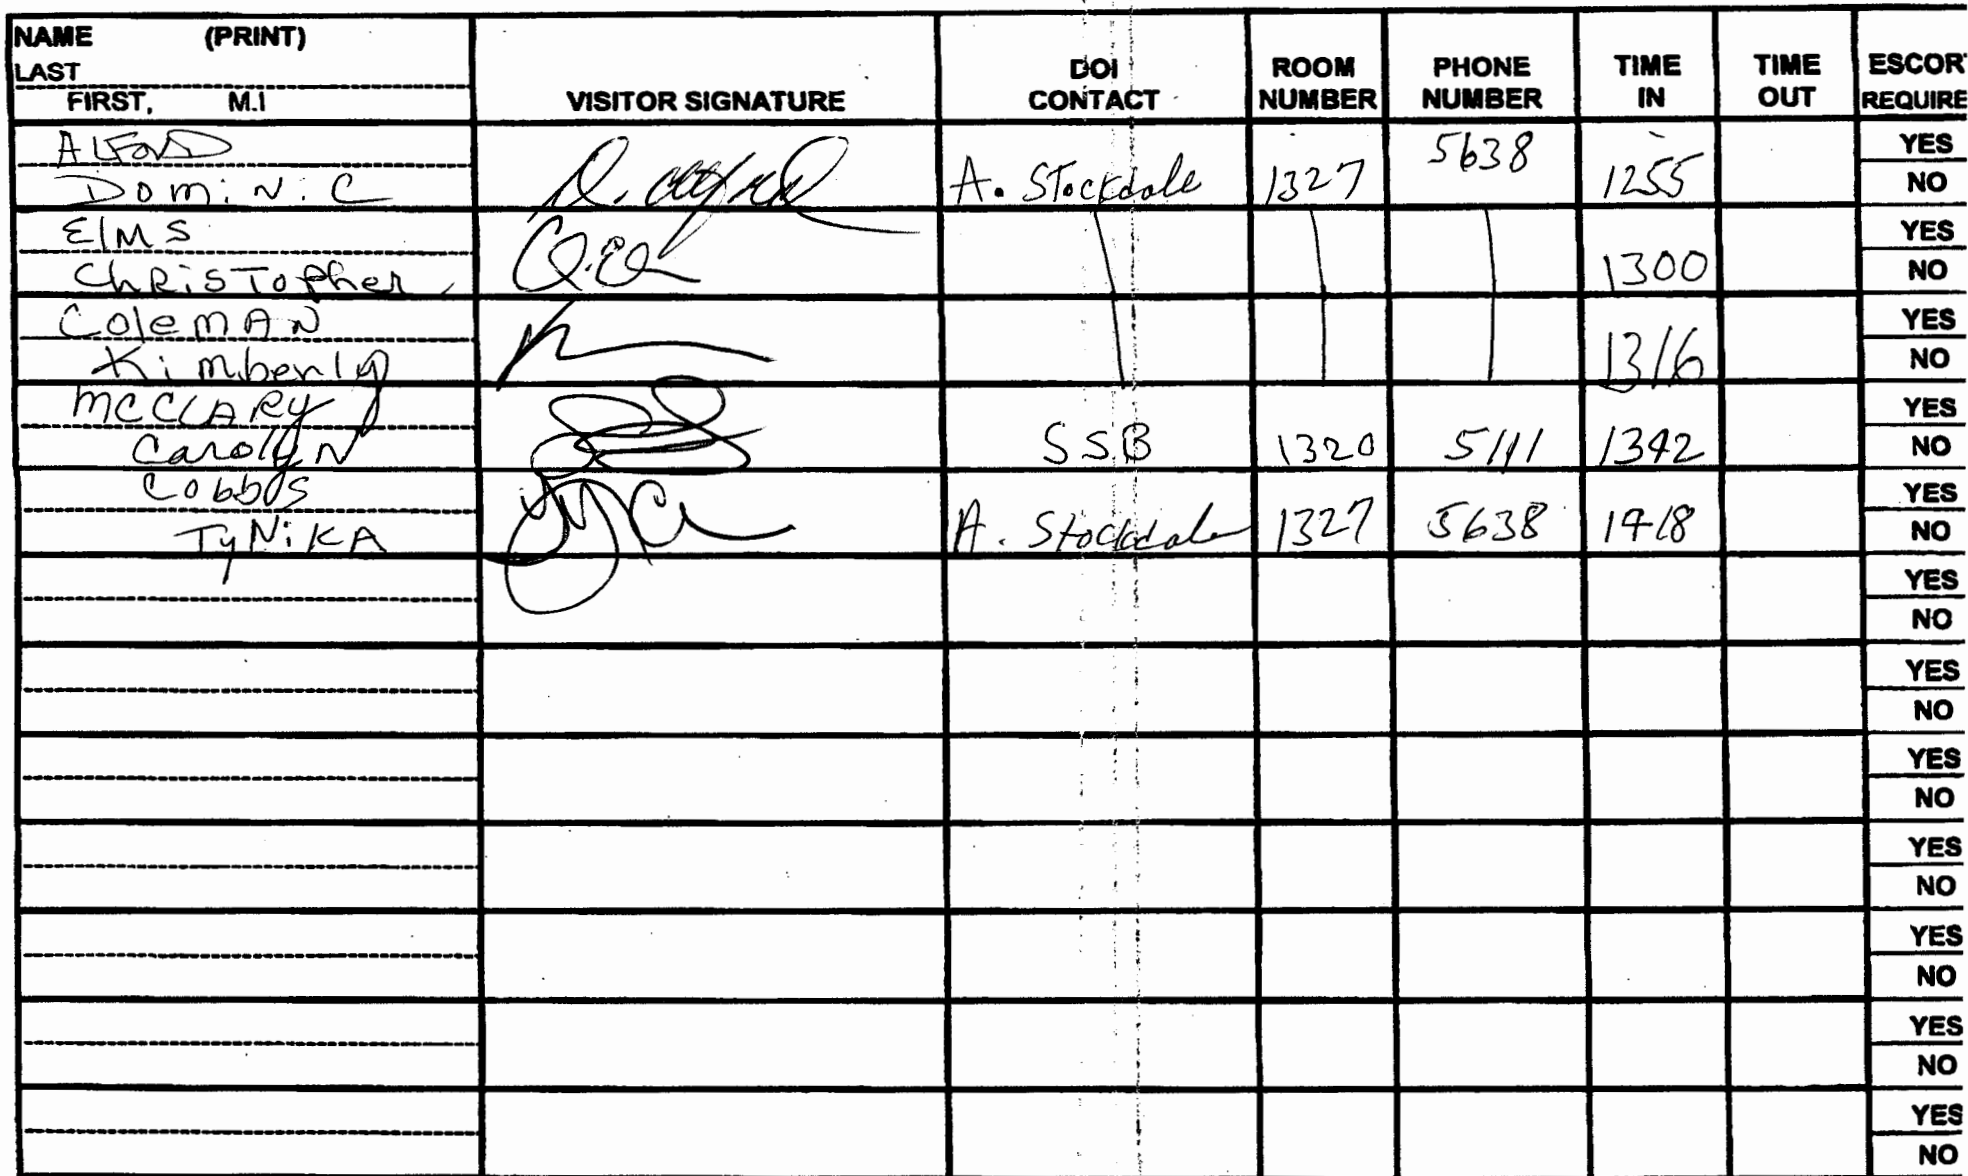 NAME (PRINT)
LAST
FIRST, M.I
VISITOR SIGNATURE
DOI CONTACT
ROOM NUMBER
PHONE NUMBER
TIME IN
TIME OUT
ESCOR
REQUIRE
ALFORD
DOMiNiC
A. Stockdale 1327 5638 1255
YES
NO
ElMS
ChRiSTopher
1300
YES
NO
ColemAN
Kimberly
1316
YES
NO
McCLARy
CarolyN
SSB 1320 5111 1342
YES
NO
Cobbs
TyNiKA
A. Stockdale 1327 5638 1418
YES
NO
YES
NO
YES
NO
YES
NO
YES
NO
YES
NO
YES
NO
YES
NO